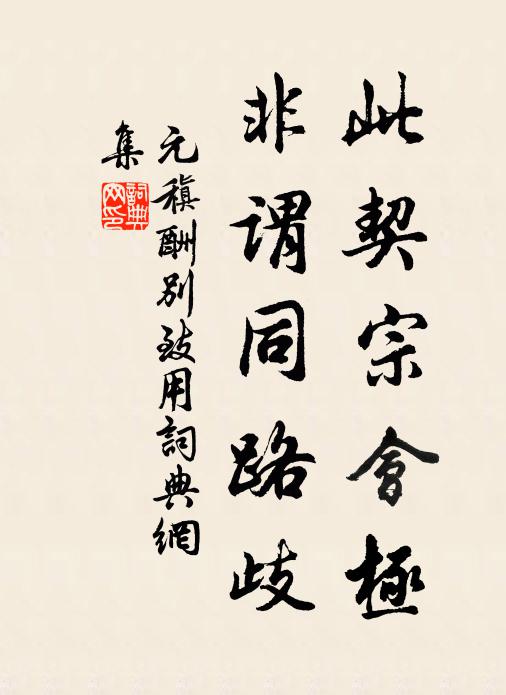 此契宗會極
非謂同路歧
元稹酬別致用詞典網
集
詞典網印